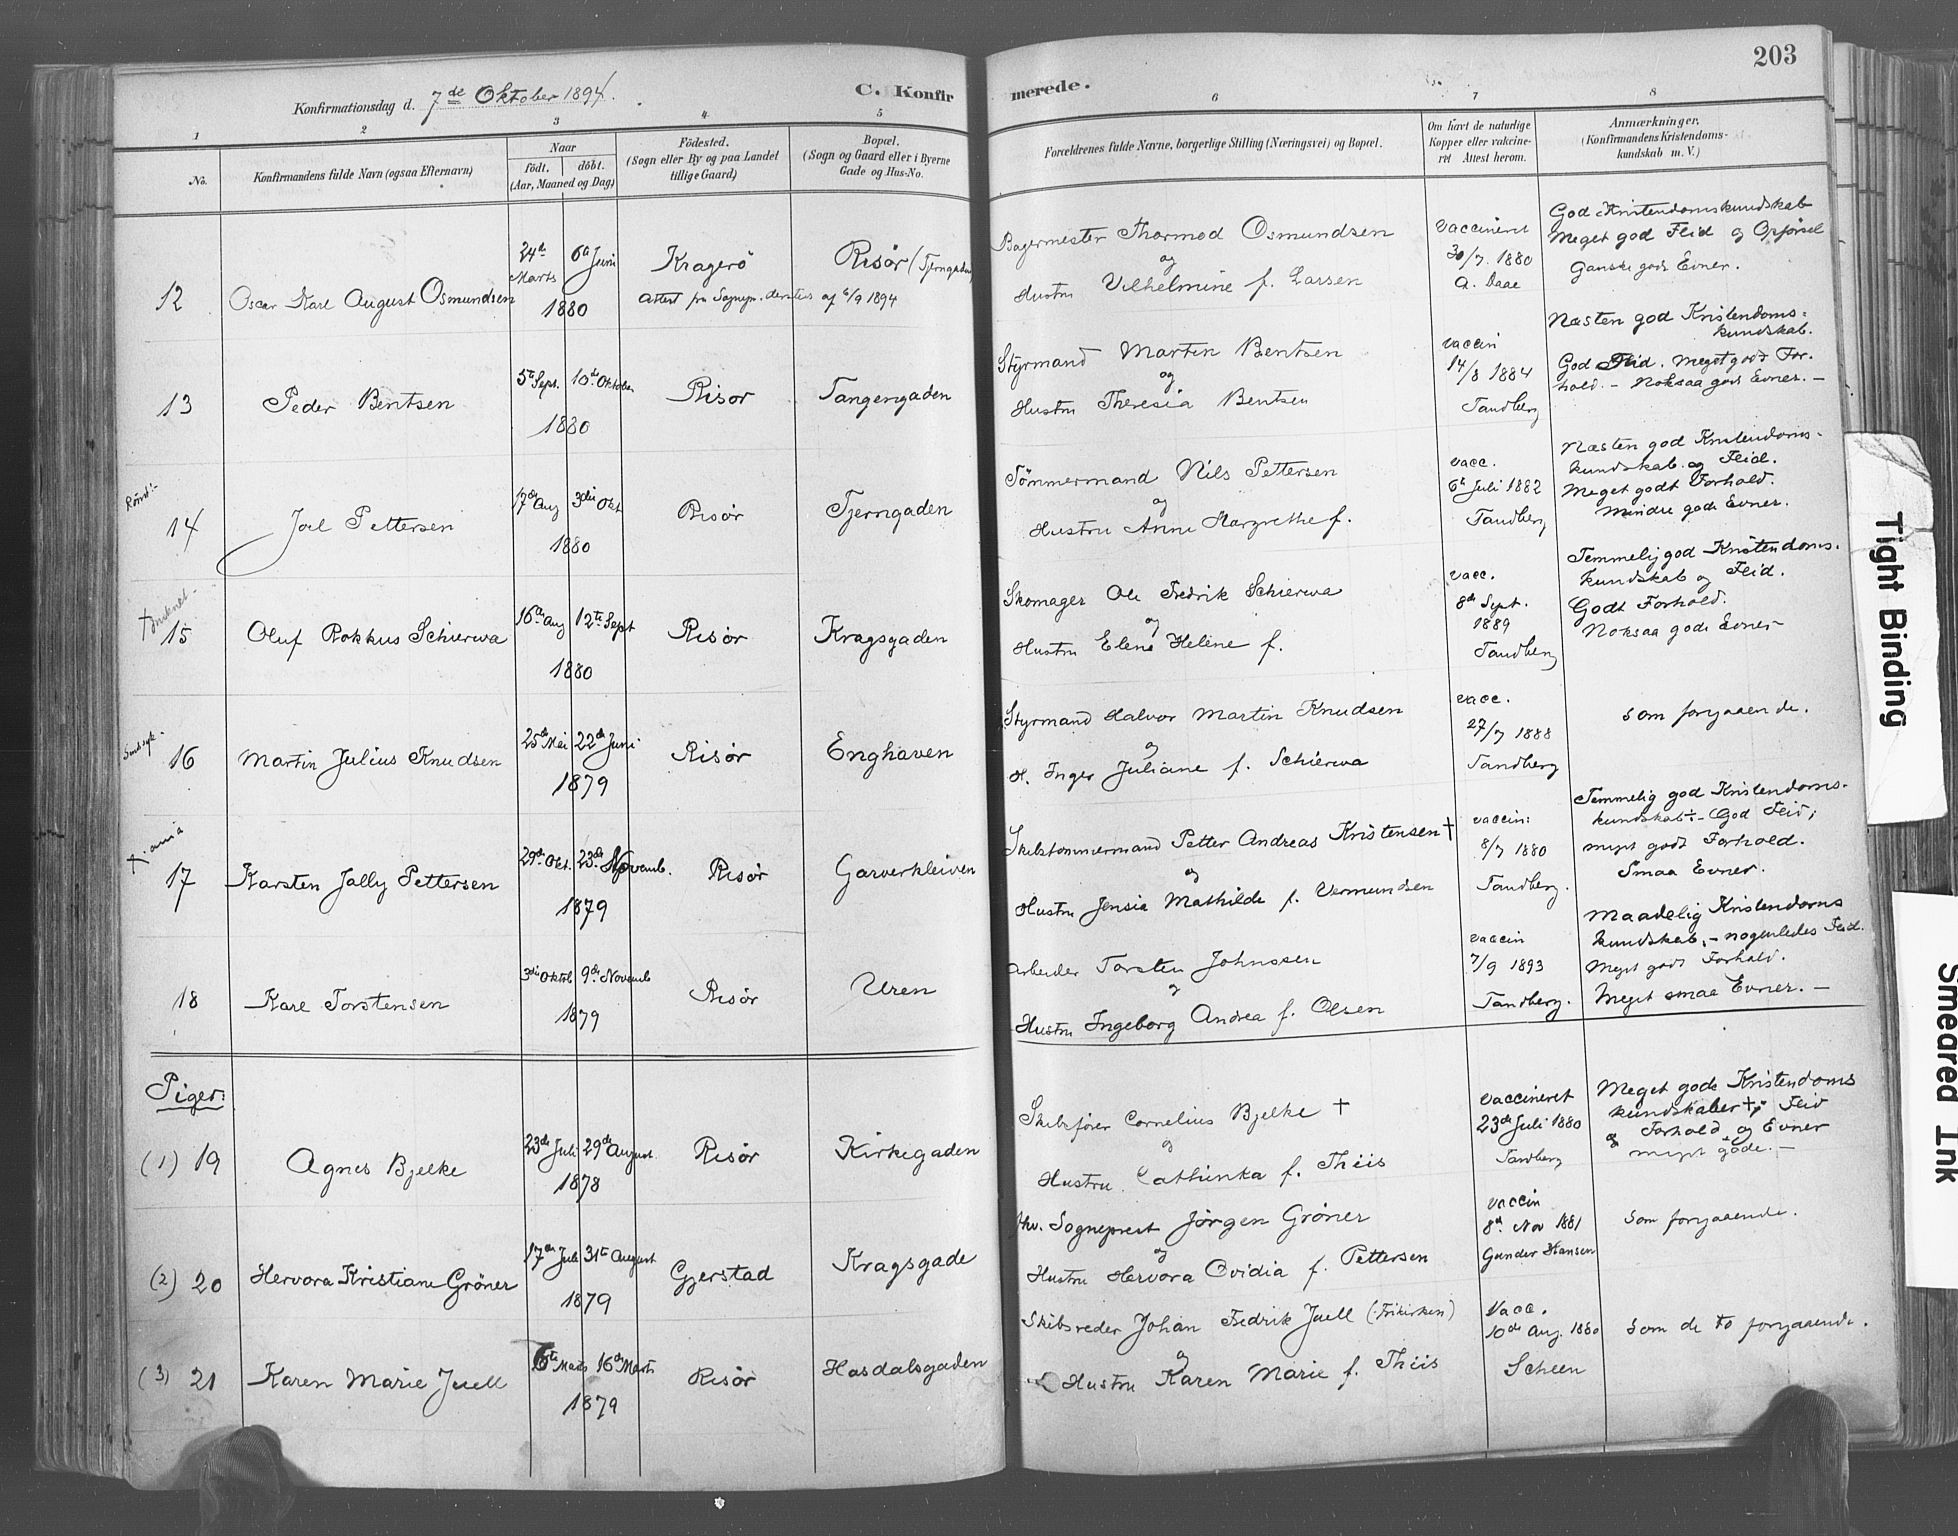 203
Konfirmationsdag d. 7de Oktober 1894.
C. Konfirmerede.
1 2 3 4 5 6 7 8
No.
Konfirmandens fulde Navn (ogsaa Efternavn)
Naar
født. døbt.
(Aar, Maaned og Dag)
Fødested.
(Sogn eller By og paa Landet
tillige Gaard)
Bopæl.
(Sogn og Gaard eller i Byerne
Gade og Hus-No.
Forældrenes fulde Navne, borgerlige Stilling (Næringsvei) og Bopæl.
Om havt de naturlige
Kopper eller vakcine-
ret Attest herom.
Anmærkninger,
(Konfirmandens Kristendoms-
kundskab m. V.)
12 Oscar Karl August Osmundsen
24de Marts 6te Juni
1880
Kragerø
Risør (Tjerngaden
Attest fra Sognepr. dersteds af 6/9 1894
Bagermester Thormod Osmundsen
og
Hustru Vilhelmine f. Larsen
Vaccineret
30/7. 1880
A. Daae
God Kristendomskundskab
Meget god Flid og Opførsel
Ganske gode Evner.
13 Peder Bentsen
5te Sept. 10de Oktober
1880
Risør
Tangengaden
Styrmand Martin Bentsen
og
Hustru Theresia Bentsen
vaccin
14/8 1884
Tandberg
Næsten god Kristendoms-
kundskab.
God Flid. Meget godt For-
hold. – Noksaa gode Evner. –
14 Joel Pettersen
17de Aug 3die Okt
1880
Risør
Tjerngaden
Tømmermand Nils Pettersen
og
Hustru Anne Margrethe f.
vacc.
6te Juli 1882
Tandberg
Næsten god Kristendoms-
kundskab og Flid.
Meget godt Forhold.
Mindre gode Evner.
15 Oluf Rokkus Schierwa
16de Aug 12te Sept
1880
Risør
Kragsgaden
Skomager Ole Fredrik Schierwa
og
Hustru Elene Helene f.
vacc.
8de Sept.
1889
Tandberg
Temmelig god Kristendoms-
kundskab og Flid.
Godt Forhold.
Noksaa gode Evner
16 Martin Julius Knudsen
25de Mai 22de Juni
1879
Risør
Enghaven
Styrmand Halvor Martin Knudsen
og
H. Inger Juliane f. Schierwa
vacc.
27/7 1888
Tandberg
Som foregaaende.
X.ania
17 Karsten Jally Pettersen
29de Okt. 23de Novemb.
1879
Risør
Garverkleiven
Skibstømmermand Petter Andreas Kristensen †
og
Hustru Jensia Mathilde f. Vermundsen
vaccin:
8/7 1880
Tandberg.
Temmelig god Kristendoms-
kundskab – God Flid;
meget godt Forhold.
Smaa Evner.
18 Karl Torstensen
3die Oktob 9de Novemb
1879
Risør
Uren
Arbeider Torsten Johnssen
og
Hustru Ingeborg Andrea f. Olsen
vaccin
7/9 1893
Tandberg.
Maadelig Kristendoms
kundskab, – nogenledes Flid.
Meget godt Forhold.
Meget smaa Evner. –
Piger:
(1) 19 Agnes Bjelke
23de Juli 29de August
1878
Risør
Kirkegaden
Skibsfører Cornelius Bjelke †
og
Hustru Cathinka f. Thiis
Vaccineret
23de Juli 1880
Tandberg
Meget gode Kristendoms
kundskaber, Flid
Forhold og Evner
meget gode. –
(2) 20 Hervora Kristiane Grøner
17de Juli 31te August
1879
Gjerstad
Kragsgade
fhv. Sogneprest Jørgen Grøner
og
Hustru Hervora Ovidia f. Pettersen
vaccin
8de Nov 1881
Gunder Hansen
Som foregaaende.
(3) 21 Karen Marie Juell
6te Marts 16de Marts
1879
Risør
Hasdalsgaden
Skibsreder Johan Fredrik Juell (Frikirken)
og
Hustru Karen Marie f. Thiis
Vacc.
10de Aug. 1880
Scheen
Som de to foregaaende.
Tight Binding
Smeared Ink